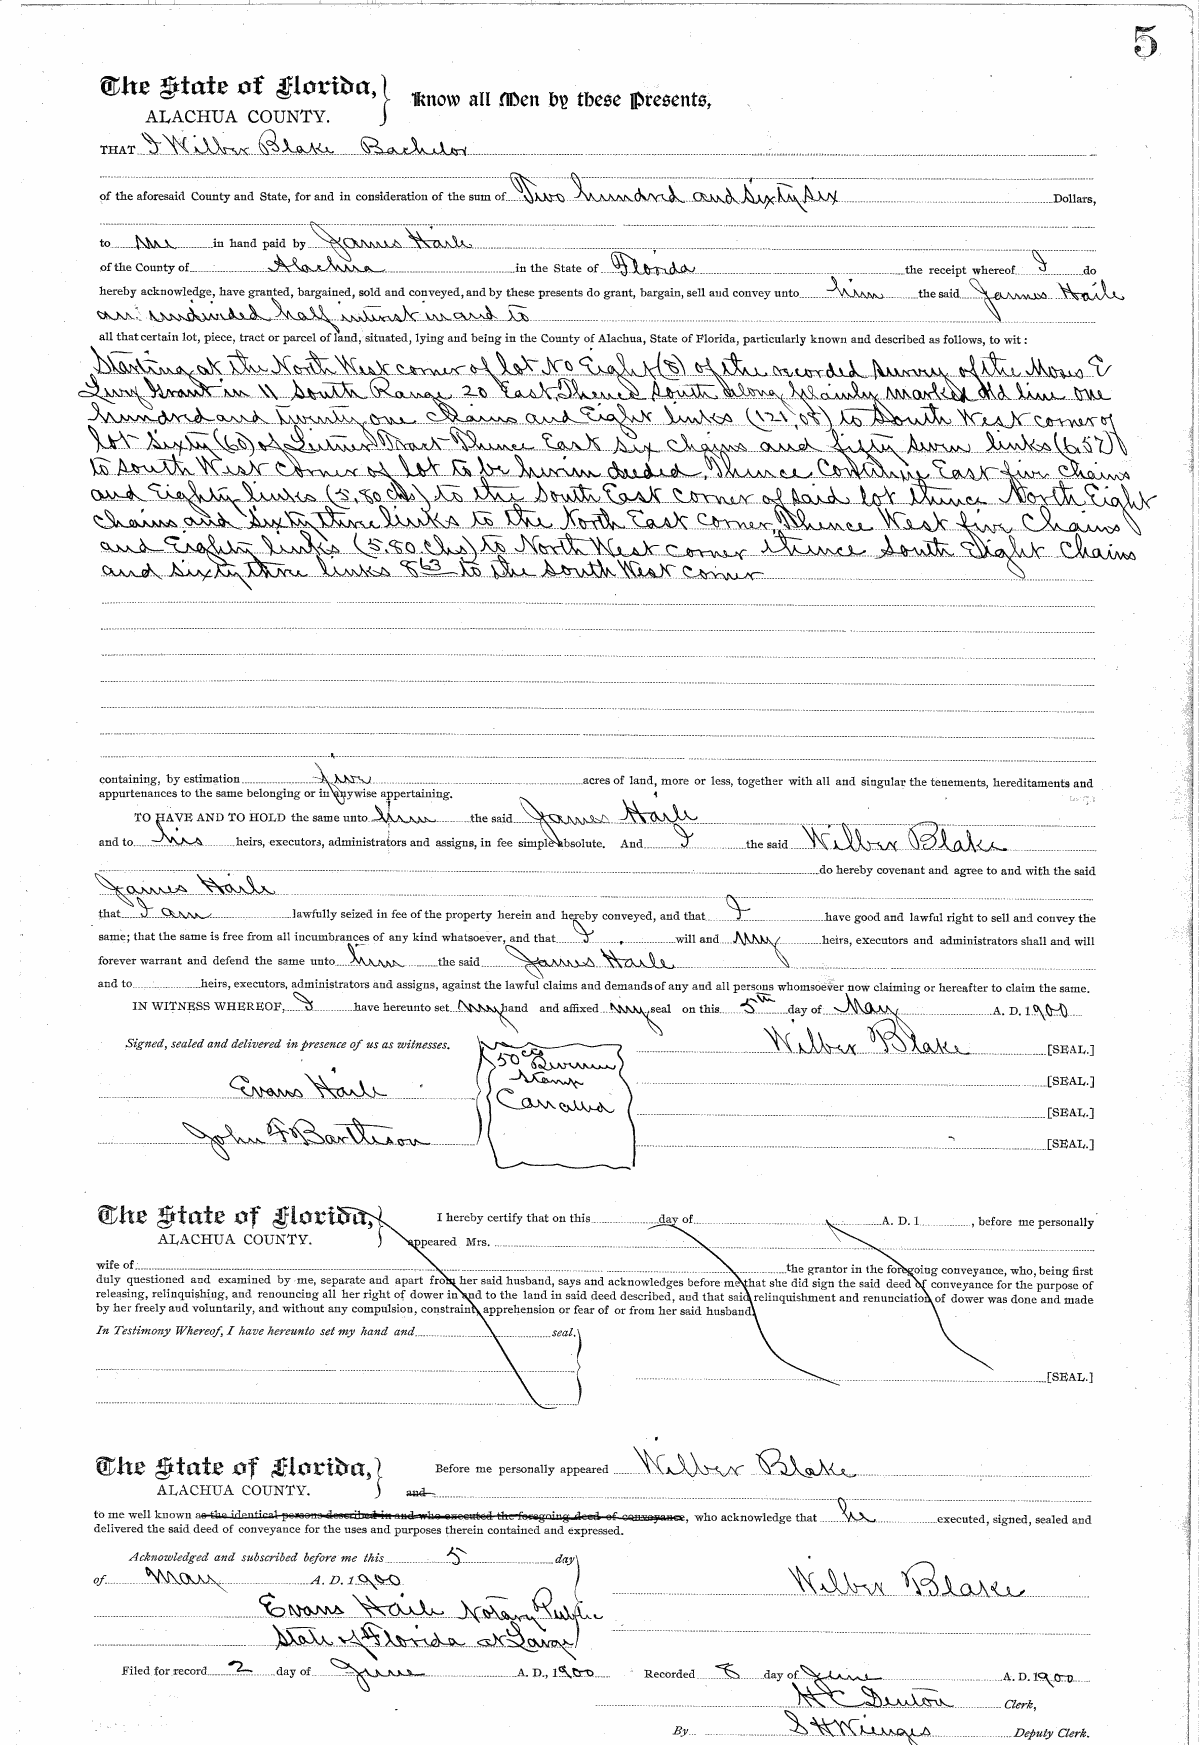 5
The State of Florida,
Know all Men by these Presents,
ALACHUA COUNTY.
THAT I Wilber Blake Bachelor
of the aforesaid County and State, for and in consideration of the sum of Two hundred and sixty six Dollars,
to me in hand paid by James Haile
of the County of Alachua in the State of Florida the receipt whereof I do
hereby acknowledge, have granted, bargained, sold and conveyed, and by these presents do grant, bargain, sell and convey unto him the said James Haile
an undivided half interest in and to
all that certain lot, piece, tract or parcel of land, situated, lying and being in the County of Alachua, State of Florida, particularly known and described as follows, to wit:
Starting at the North West corner of lot No Eight (8) of the recorded survey of the Moses E
Levy Grant in 11 South Range 20 East, Thence South along plainly marked old line one
hundred and twenty one Chains and Eight links (121,08) to South West corner of
lot Sixty (60) of Tract Thence East six chains and fifty seven links (6.57)
to South West corner of lot to be herein deeded, Thence Continue East five chains
and Eighty links (5.80 chs) to the South East corner of said lot thence North Eight
chains and sixty three links to the North East corner, Thence West five Chains
and Eighty links (5.80 Chs) to North West corner thence South Eight Chains
and sixty three links 8 63 to the South West corner
containing, by estimation five acres of land, more or less, together with all and singular the tenements, hereditaments and
appurtenances to the same belonging or in anywise appertaining.
TO HAVE AND TO HOLD the same unto him the said James Haile
and to his heirs, executors, administrators and assigns, in fee simple absolute. And I the said Wilber Blake
do hereby covenant and agree to and with the said
James Haile
that I am lawfully seized in fee of the property herein and hereby conveyed, and that I have good and lawful right to sell and convey the
same; that the same is free from all incumbrances of any kind whatsoever, and that I will and my heirs, executors and administrators shall and will
forever warrant and defend the same unto him the said James Haile
and to heirs, executors, administrators and assigns, against the lawful claims and demands of any and all persons whomsoever now claiming or hereafter to claim the same.
IN WITNESS WHEREOF, I have hereunto set my hand and affixed my seal on this 5th day of May A. D. 1900
Signed, sealed and delivered in presence of us as witnesses.
Wilber Blake [SEAL.]
50cts Revenue
Stamp
[SEAL.]
Evans Haile
[SEAL.]
John F Bartleson
[SEAL.]
The State of Florida,
I hereby certify that on this day of A. D. 1 , before me personally
ALACHUA COUNTY.
appeared Mrs.
wife of the grantor in the foregoing conveyance, who, being first
duly questioned and examined by me, separate and apart from her said husband, says and acknowledges before me that she did sign the said deed of conveyance for the purpose of
releasing, relinquishing, and renouncing all her right of dower in and to the land in said deed described, and that said relinquishment and renunciation of dower was done and made
by her freely and voluntarily, and without any compulsion, constraint, apprehension or fear of or from her said husband.
In Testimony Whereof, I have hereunto set my hand and seal.
[SEAL.]
The State of Florida,
Before me personally appeared Wilber Blake
ALACHUA COUNTY.
and
to me well known as the identical persons described in and who executed the foregoing deed of conveyance, who acknowledge that he executed, signed, sealed and
delivered the said deed of conveyance for the uses and purposes therein contained and expressed.
Acknowledged and subscribed before me this 5 day
of May A. D. 1900
Wilber Blake
Evans Haile Notary Public
State of Florida at Large
Filed for record 2 day of June A. D., 1900 Recorded 8 day of June A. D. 1900
H C Denton Clerk,
By S H Wienges Deputy Clerk.